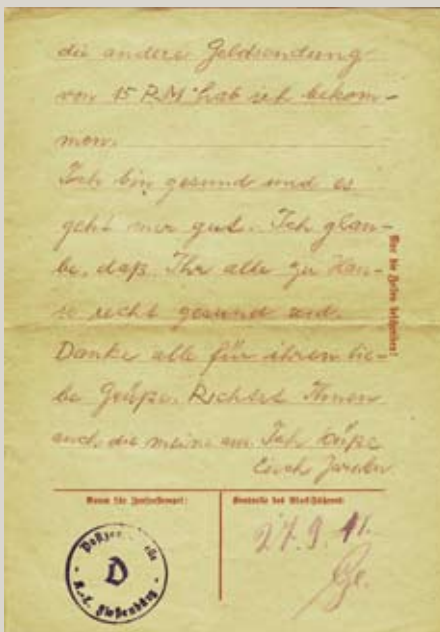 die andere Geldsendung
von 15 RM hab ich bekom-
men.
Ich bin gesund und es
geht mir gut. Ich glau-
be, daß Ihr alle zu Hau-
se recht gesund seid.
Danke alle für ihren lie-
be Grüße. Richtet Ihnen
auch die meine an. Ich küße
Euch
Nur die Zeilen beschreiben!
Raum für Zensurstempel:
Kontrolle des Blockführers:
D
K.L. Floßenbürg
27.9.41.